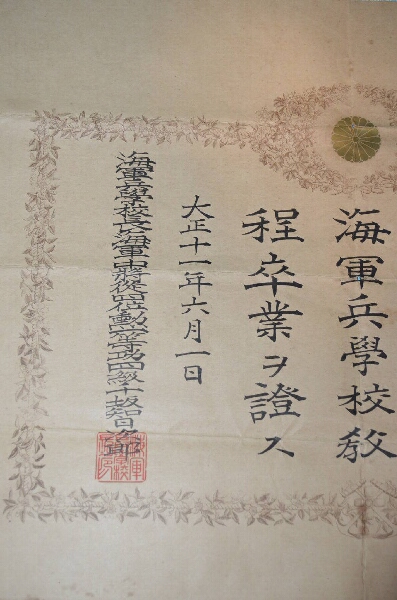 海軍兵學校敎
程卒業ヲ證ス
大正十一年六月一日
海軍兵學校長海軍中將從四位勳二等功四級千坂智次郎